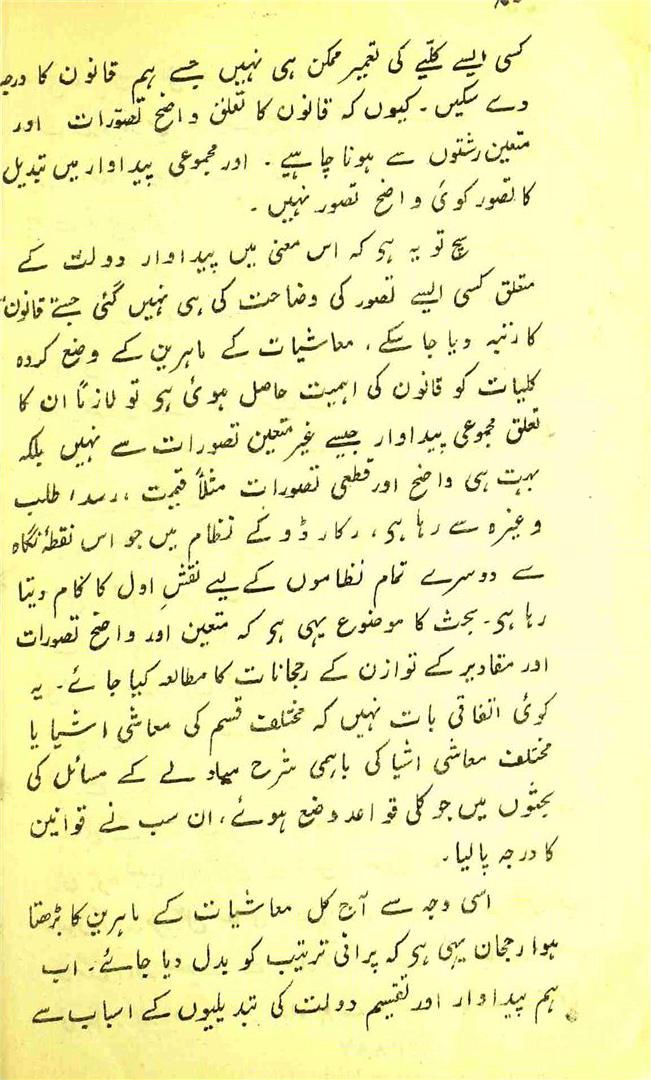 کسی ایسے کلیے کی تعمیر ممکن ہی نہیں جسے ہم قانون کا درجہ
دے سکیں۔ کیوں کہ قانون کا تعلق واضح تصوّرات اور
متعین رشتوں سے ہونا چاہیے۔ اور مجموعی پیداوار میں تبدیل
کا تصور کوئی واضح تصور نہیں۔
سچ تو یہ ہی کہ اس معنی میں پیداوار دولت کے
متعلق کسی ایسے تصور کی وضاحت کی ہی نہیں گئی جسے قانون
کا رتبہ دیا جا سکے، معاشیات کے ماہرین کے وضع کردہ
کلیات کو قانون کی اہمیت حاصل ہوئی ہی تو لازماً ان کا
تعلق مجموعی پیداوار جیسے غیر متعین تصورات سے نہیں بلکہ
بہت ہی واضح اور قطعی تصورات مثلاً قیمت، رسد، طلب
وغیرہ سے رہا ہی، رکارڈو کے نظام میں جو اس نقطۂ نگاہ
سے دوسرے تمام نظاموں کے لیے نقشِ اول کا کام دیتا
رہا ہی۔ بحث کا موضوع یہی ہی کہ متعین اور واضح تصورات
اور مقادیر کے توازن کے رجحانات کا مطالعہ کیا جائے۔ یہ
کوئی اتفاقی بات نہیں کہ مختلف قسم کی معاشی اشیا یا
مختلف معاشی اشیا کی باہمی شرح مبادلے کے مسائل کی
بحثوں میں جو کلی قواعد وضع ہوئے، ان سب نے قوانین
کا درجہ پا لیا۔
اسی وجہ سے آج کل معاشیات کے ماہرین کا بڑھتا
ہوا رجحان یہی ہی کہ پرانی ترتیب کو بدل دیا جائے۔ اب
ہم پیداوار اور تقسیم دولت کی تبدیلیوں کے اسباب سے